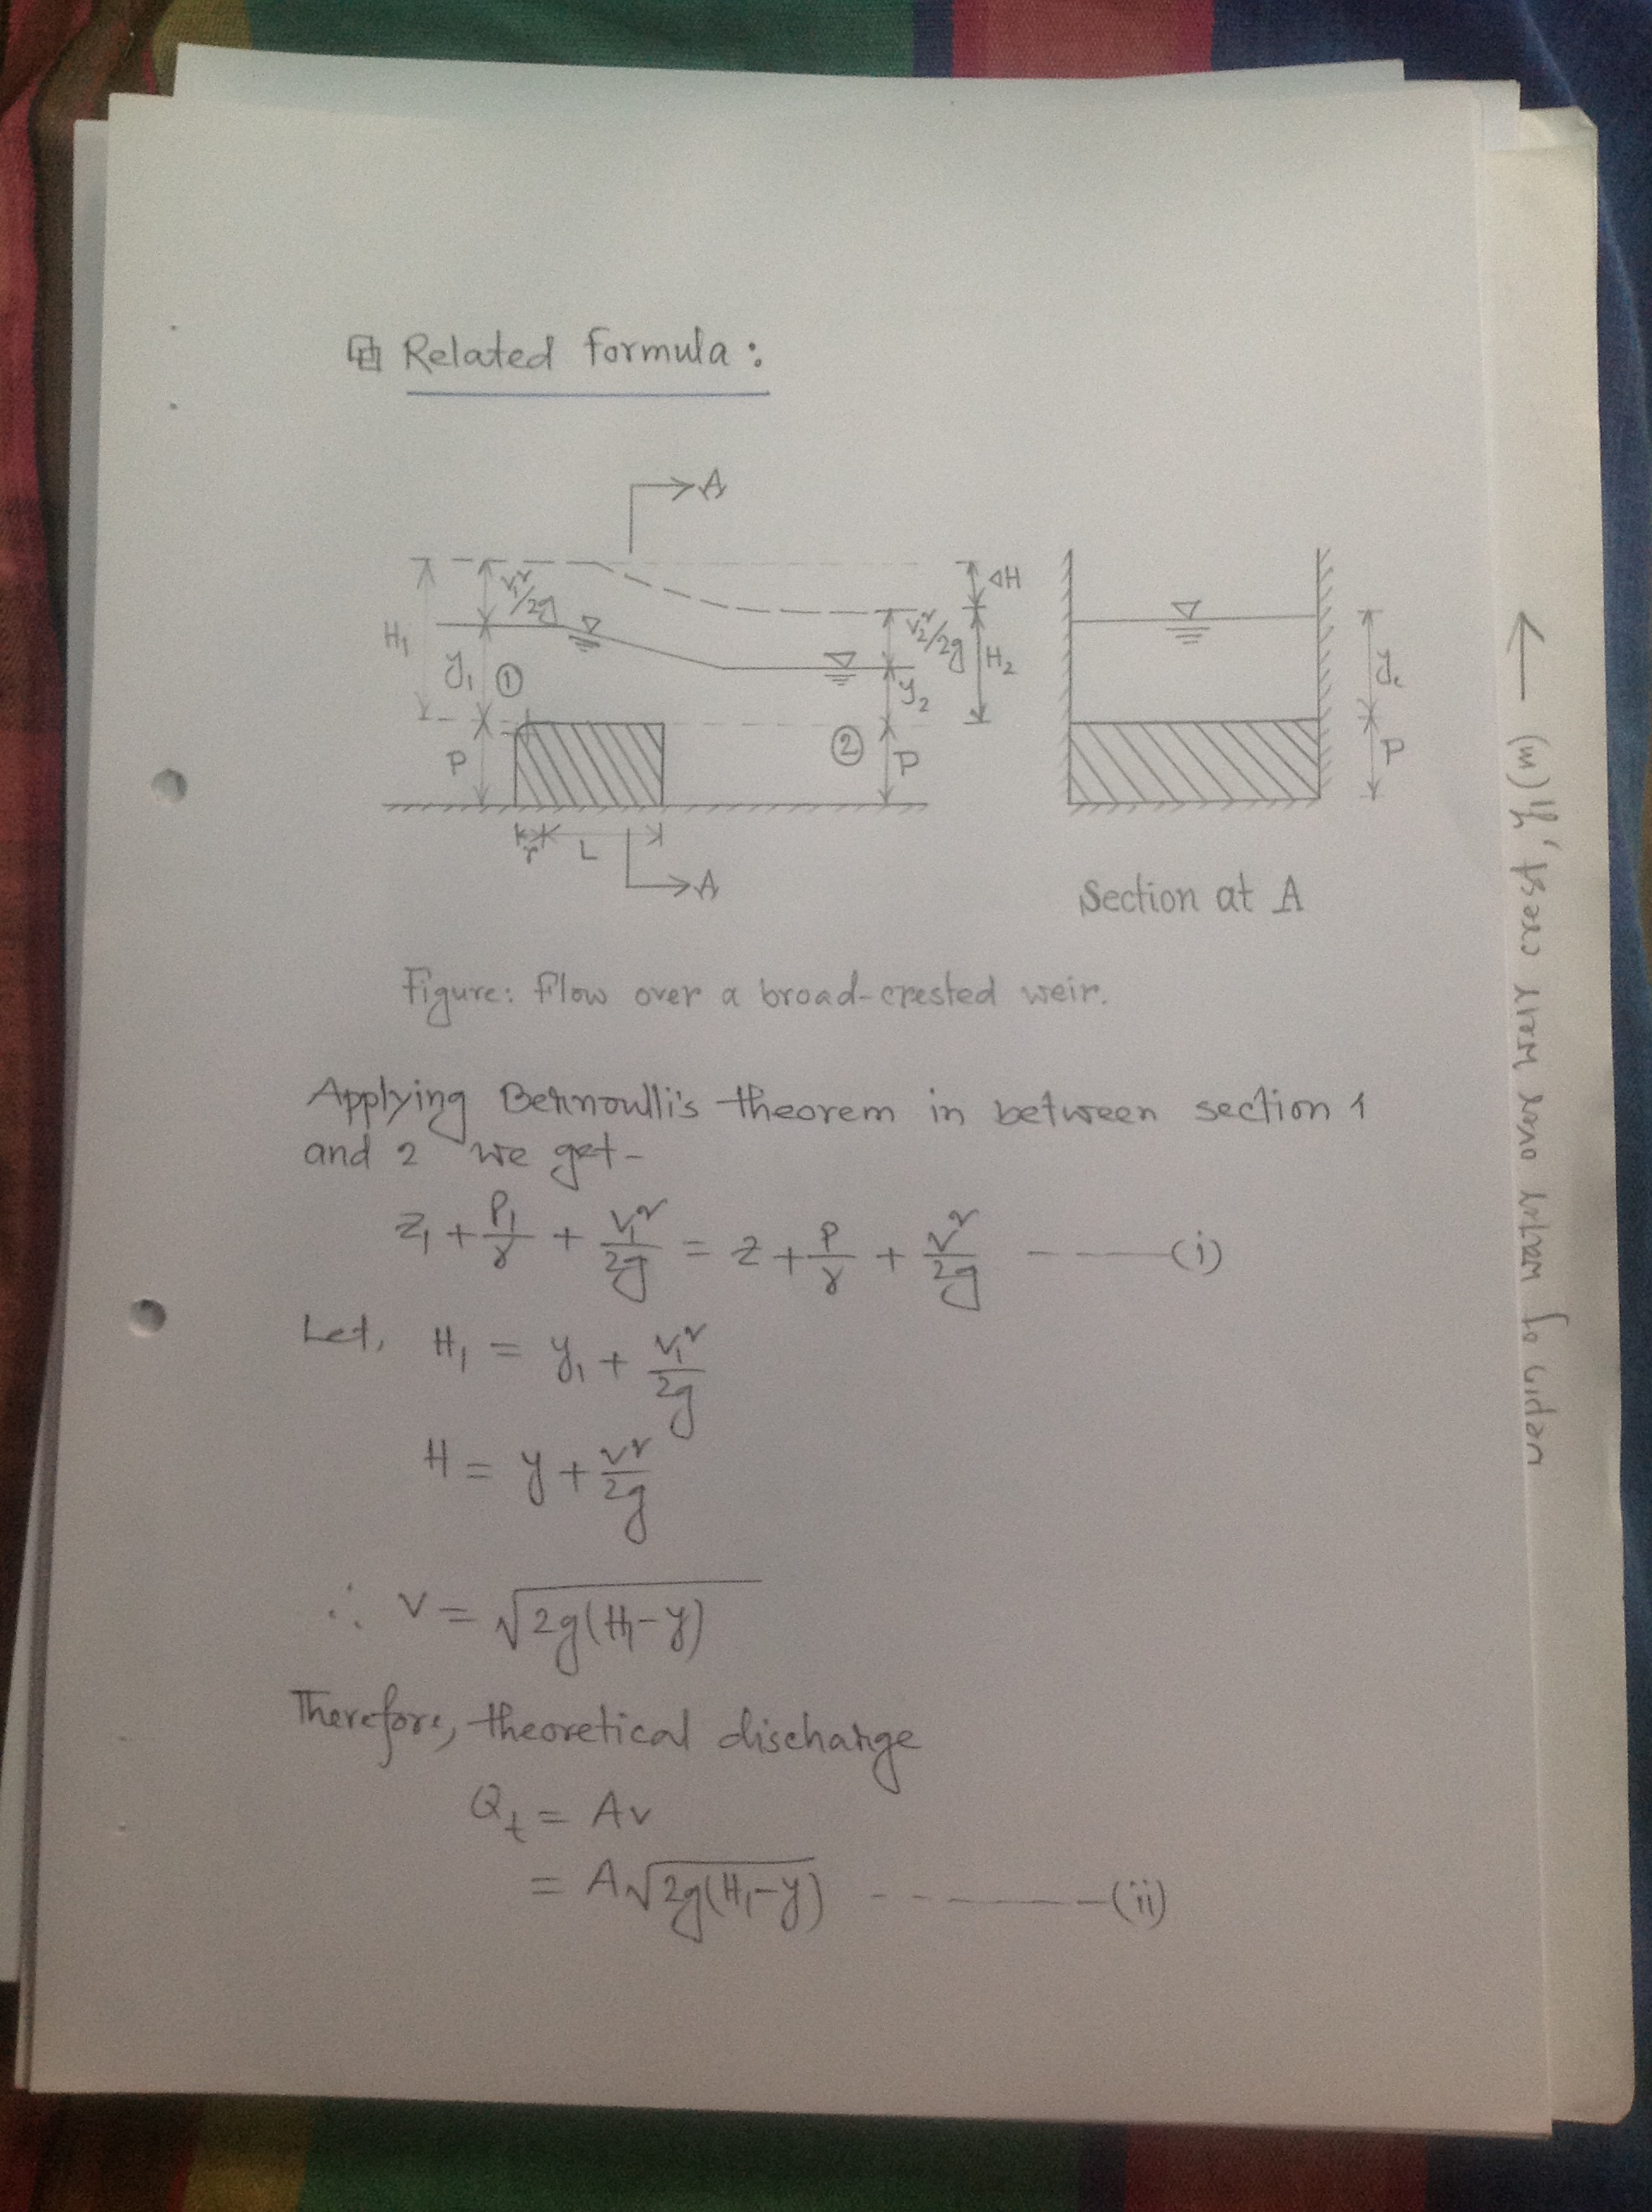 Related formula:
A
V₁²/2g
ΔH
H₁
y₁
①
V₂²/2g
H₂
y₂
②
P
P
r
L
A
y_c
P
Section at A
Figure: Flow over a broad-crested weir.
Applying Bernoulli's theorem in between section 1
and 2 we get-
Z₁ + P₁/γ + V₁²/2g = Z + P/γ + V²/2g ------(i)
Let, H₁ = y₁ + V₁²/2g
H = y + V²/2g
∴ V = √2g(H₁-y)
Therefore, theoretical discharge
Q_t = AV
= A√2g(H₁-y) ------(ii)
Depth of water over weir crest, y₁ (m) →